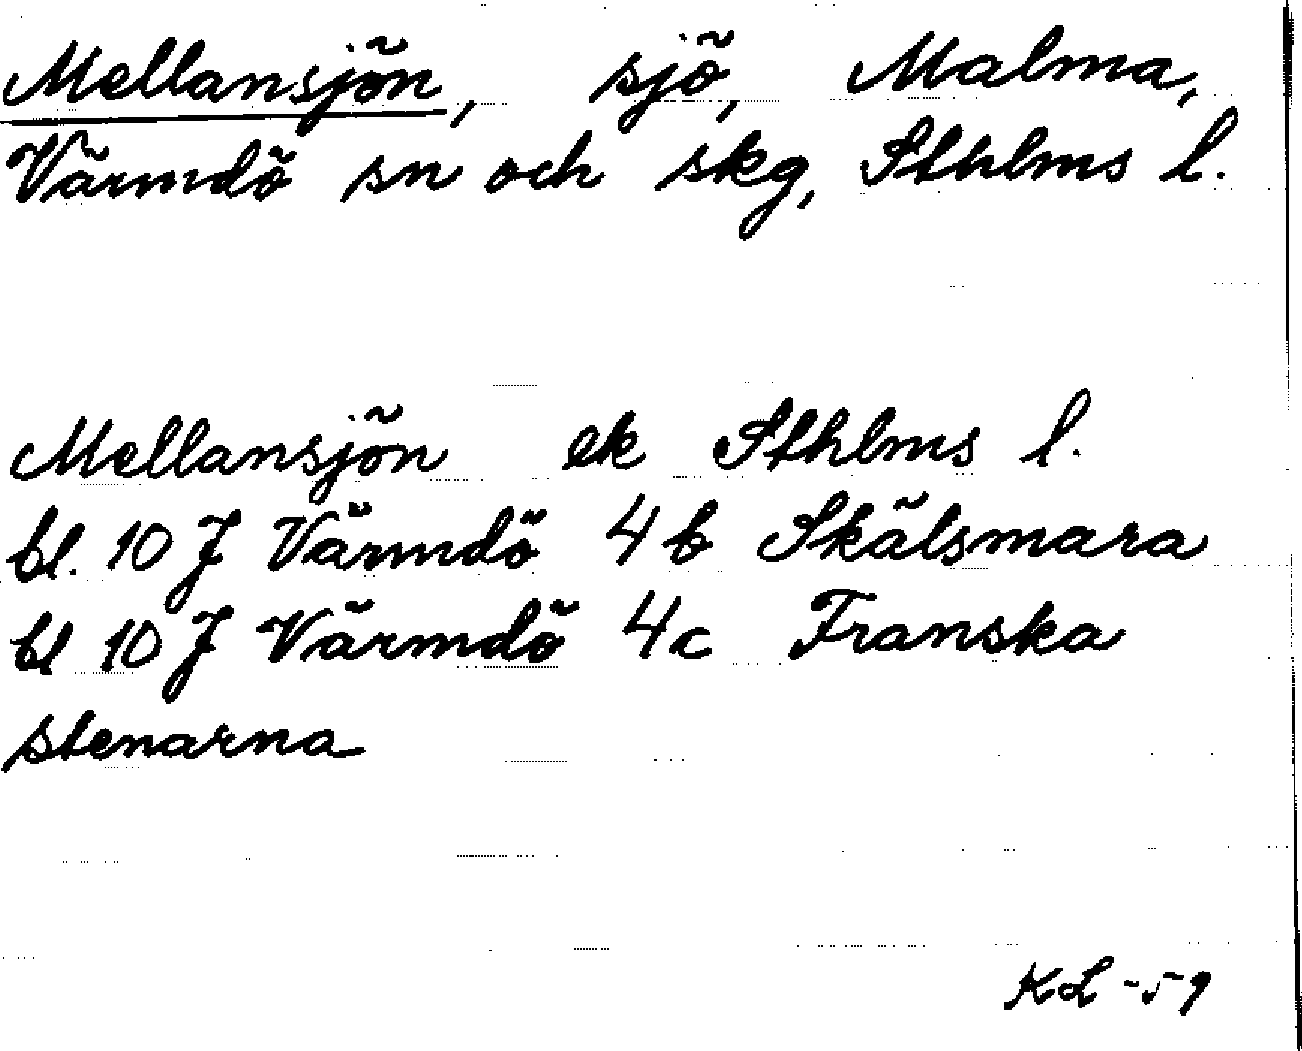 Mellansjön, sjö, Malma,
Värmdö sn och skg, Sthlms l.
Mellansjön ek Sthlms l.
bl. 10 J Värmdö 4 b Skälsmara
bl 10 J Värmdö 4c Franska
stenarna
KL -59